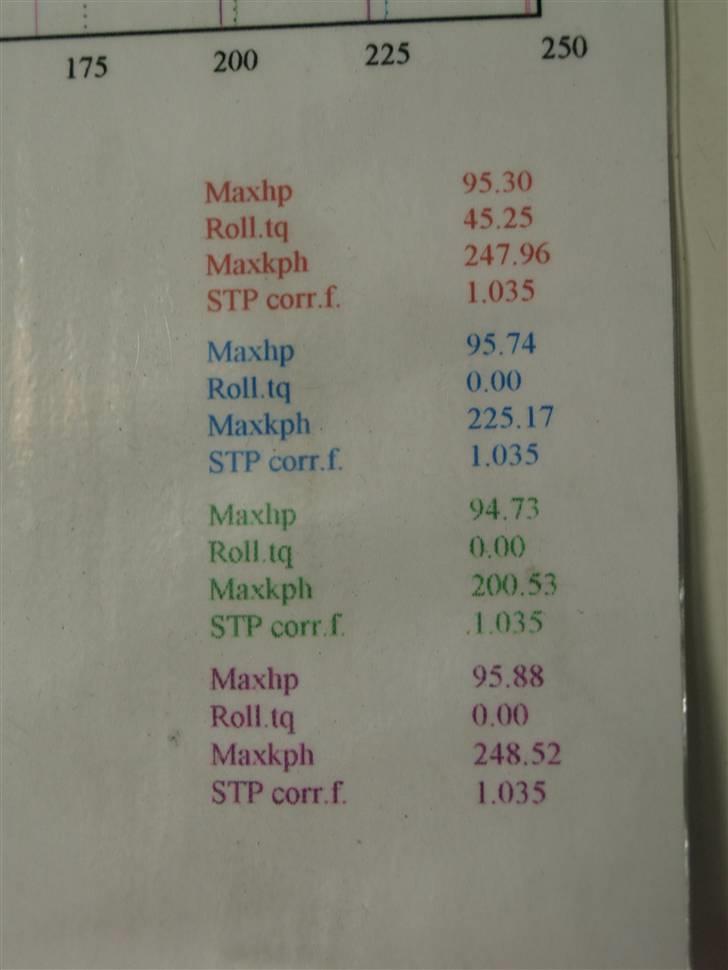 175 200 225 250
Maxhp 95.30
Roll.tq 45.25
Maxkph 247.96
STP corr.f. 1.035
Maxhp 95.74
Roll.tq 0.00
Maxkph 225.17
STP corr.f. 1.035
Maxhp 94.73
Roll.tq 0.00
Maxkph 200.53
STP corr.f. 1.035
Maxhp 95.88
Roll.tq 0.00
Maxkph 248.52
STP corr.f. 1.035